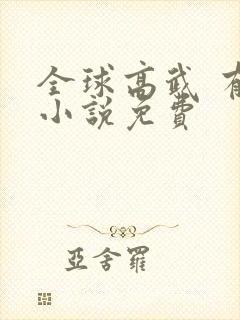 全球高武 有
小說免費
亞舍羅